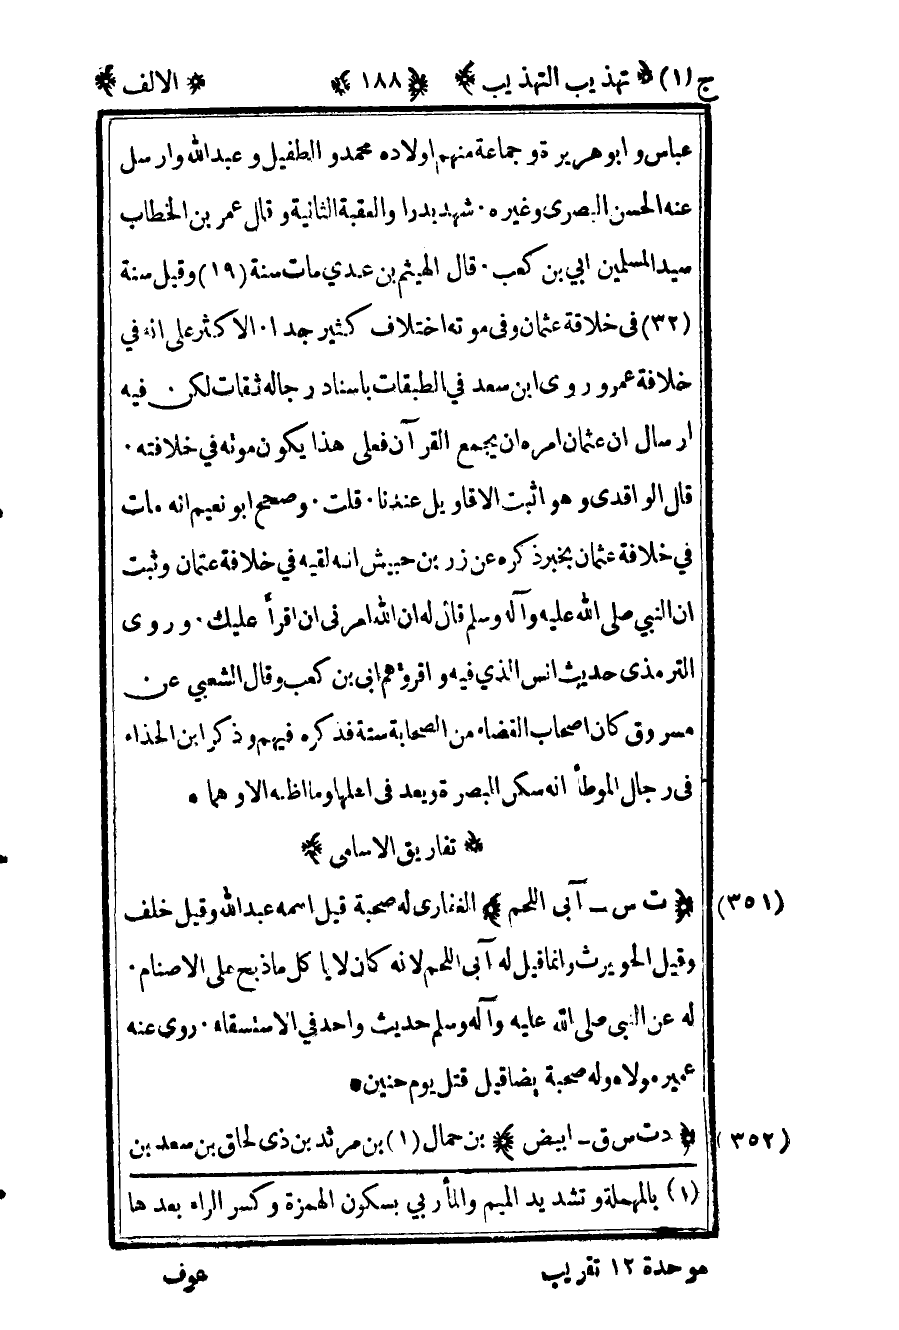 ج (١) ﴿ تهذيب التهذيب ﴾ ﴿ ١٨٨ ﴾ ﴿ الالف ﴾
عباس و ابو هريرة و جماعة منهم اولاده محمد و الطفيل و عبد الله وارسل
عنه الحسن البصرى وغيره. شهد بدرا والعقبة الثانية و قال عمر بن الخطاب
سيد المسلمين ابي بن كعب. قال الهيثم بن عدي مات سنة (١٩) وقيل سنة
(٣٢) فى خلافة عثمان وفى موته اختلاف كثير جدا. الاكثر على انه في
خلافة عمر و روى ابن سعد في الطبقات باسناد رجاله ثقات لكن فيه
ارسال ان عثمان امره ان يجمع القرآن فعلى هذا يكون موته في خلافته.
قال الواقدى و هو اثبت الاقاويل عندنا. قلت. و صحح ابو نعيم انه مات
في خلافة عثمان بخبر ذكره عن زر بن حبيش انه لقيه في خلافة عثمان وثبت
ان النبي صلى الله عليه وآله وسلم قال له ان الله امرنى ان اقرأ عليك. و روى
الترمذى حديث انس الذي فيه و اقرؤهم ابى بن كعب وقال الشعبي عن
مسروق كان اصحاب القضاء من الصحابة ستة فذكره فيهم و ذكر ابن الحذاء
فى رجال الموطأ انه سكن البصرة ويعد فى اهلها وما اظنه الا وهما.
﴿ تفاريق الاسامى ﴾
(٣٥١) ﴿ ت س ـ آبى اللحم ﴾ الغفارى له صحبة قيل اسمه عبد الله وقيل خلف
وقيل الحويرث وانما قيل له آبى اللحم لانه كان لا ياكل ما ذبح على الاصنام.
له عن النبى صلى الله عليه وآله وسلم حديث واحد في الاستسقاء. روى عنه
عمير مولاه وله صحبة يضا قيل قتل يوم حنين.
(٣٥٢) ﴿ د ت س ق ـ ابيض ﴾ بن حمال (١) بن مرثد بن ذى لحاق بن سعد بن
(١) بالمهملة و تشديد الميم والمأربي بسكون الهمزة وكسر الراء بعدها
موحدة ١٢ تقريب
عوف